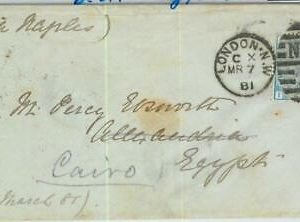 (via Naples)
LONDON·N.W
C X
MR 7
81
N
Mr. Percy Ebsworth
Alexandria
Egypt
Cairo
(March 81)